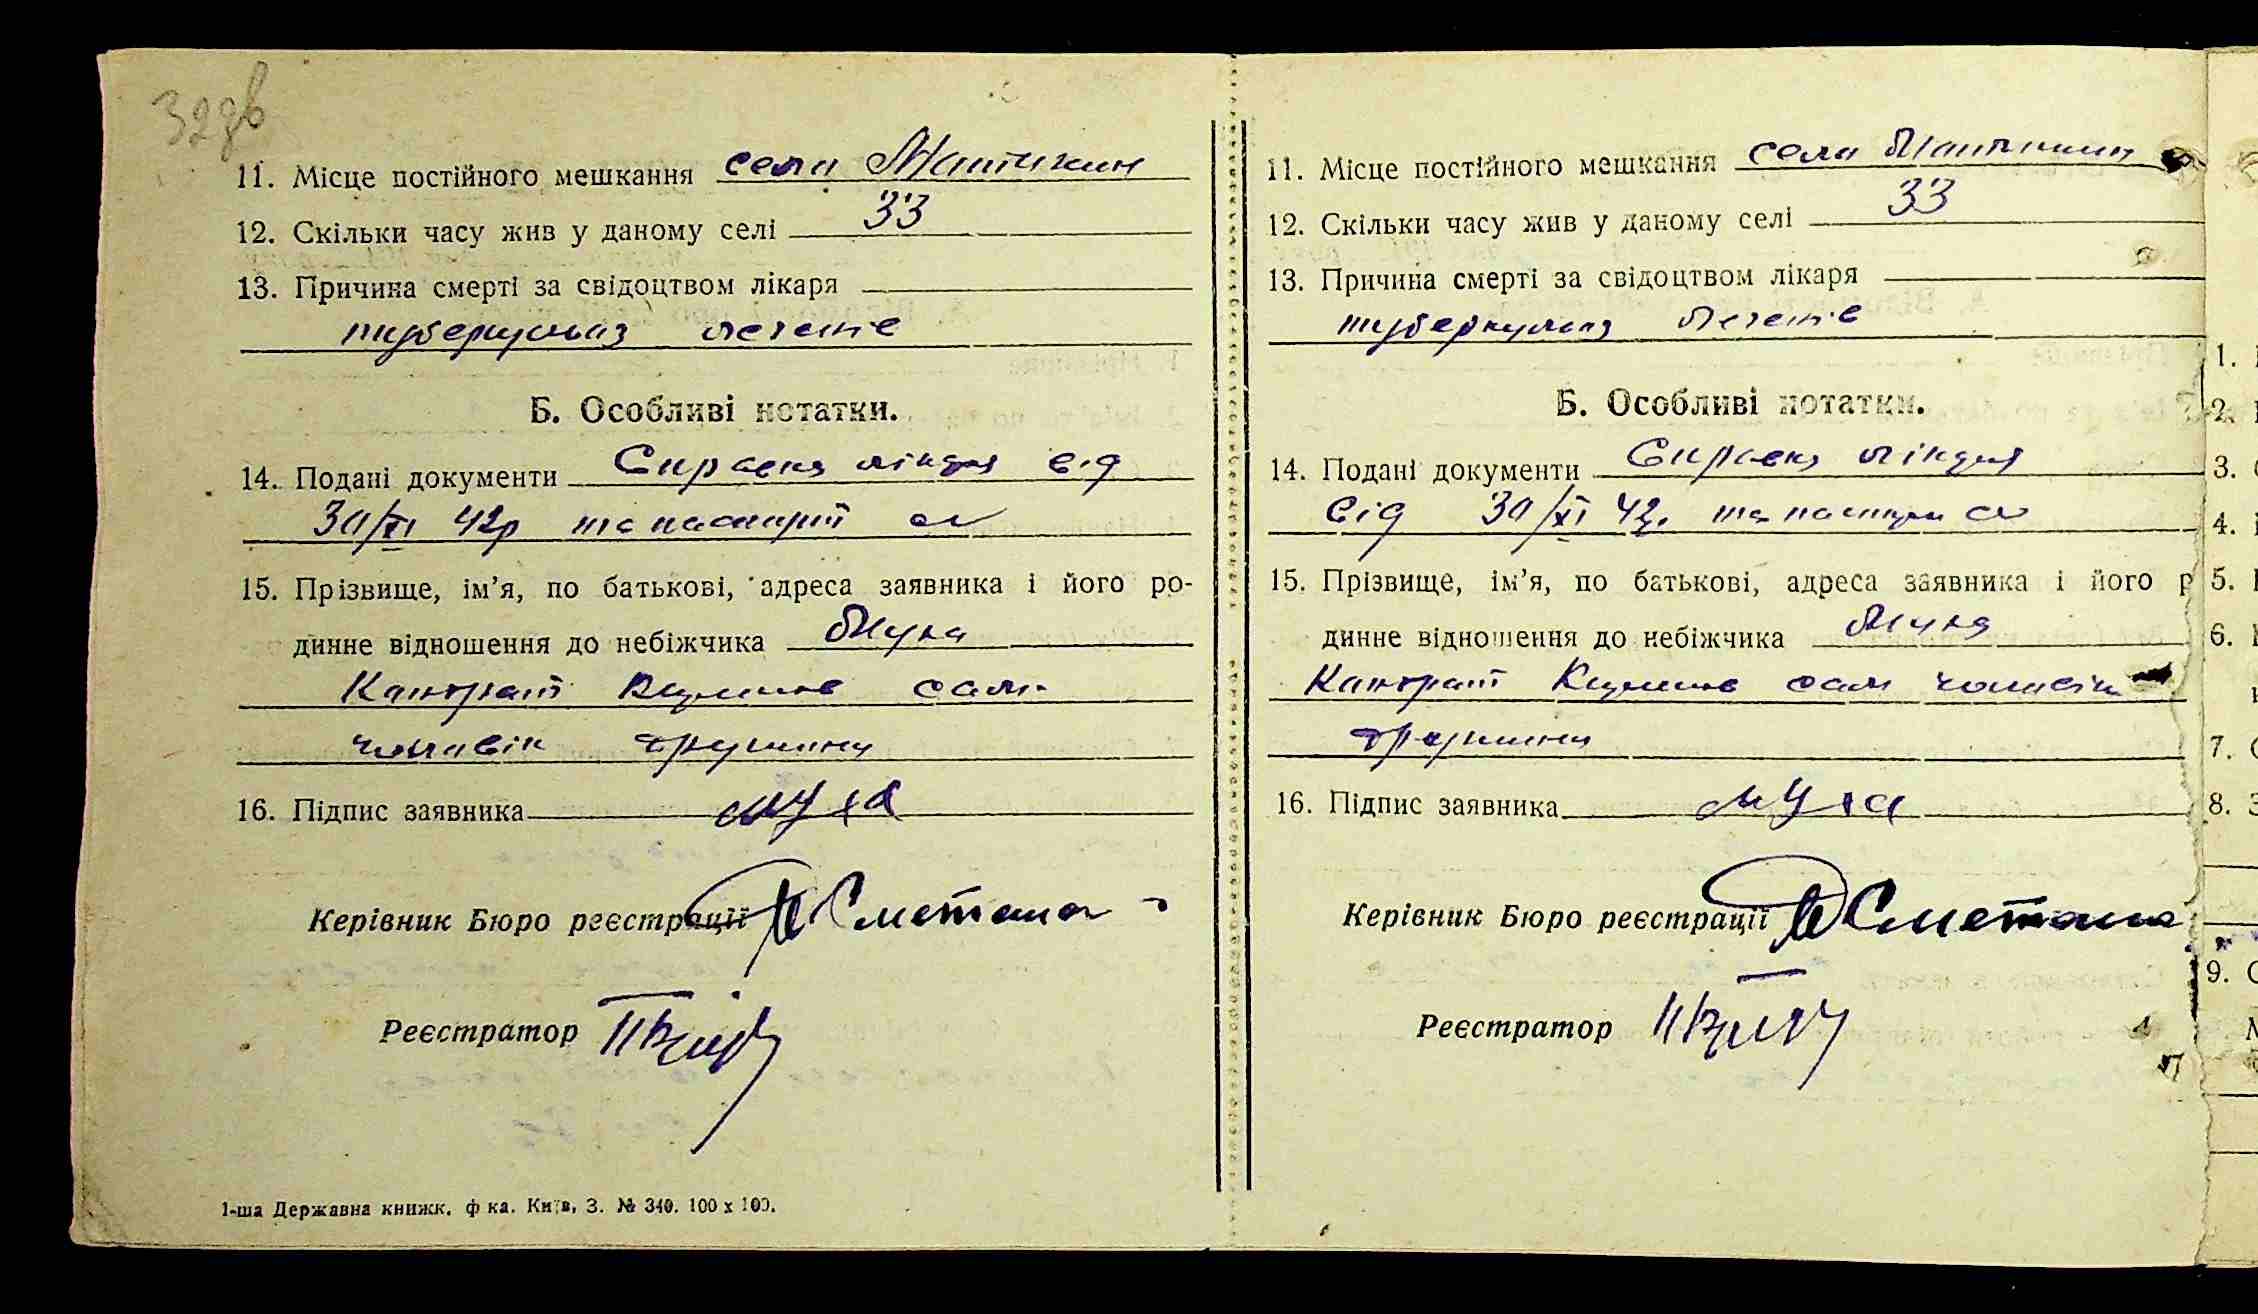 32зв
11. Місце постійного мешкання села
12. Скільки часу жив у даному селі 33
13. Причина смерті за свідоцтвом лікаря
туберкульоз легенів
Б. Особливі нотатки.
14. Подані документи Справка лікаря від
30/XI 42р та паспорт
15. Прізвище, ім’я, по батькові, адреса заявника і його ро-
динне відношення до небіжчика Муха
Кандрат сам
чоловік дружини
16. Підпис заявника Муха
Керівник Бюро реєстрації Сметана
Реєстратор
1-ша Державна книжк. ф-ка. Київ, З. № 340. 100 x 100.
11. Місце постійного мешкання села
12. Скільки часу жив у даному селі 33
13. Причина смерті за свідоцтвом лікаря
туберкульоз легенів
Б. Особливі нотатки.
14. Подані документи Справка лікаря
від 30/XI 42р. та паспорт
15. Прізвище, ім’я, по батькові, адреса заявника і його р
динне відношення до небіжчика Муха
Кандрат сам чоловік
дружини
16. Підпис заявника Муха
Керівник Бюро реєстрації Сметана
Реєстратор
1.
2.
3.
4.
5.
6.
7.
8.
9.